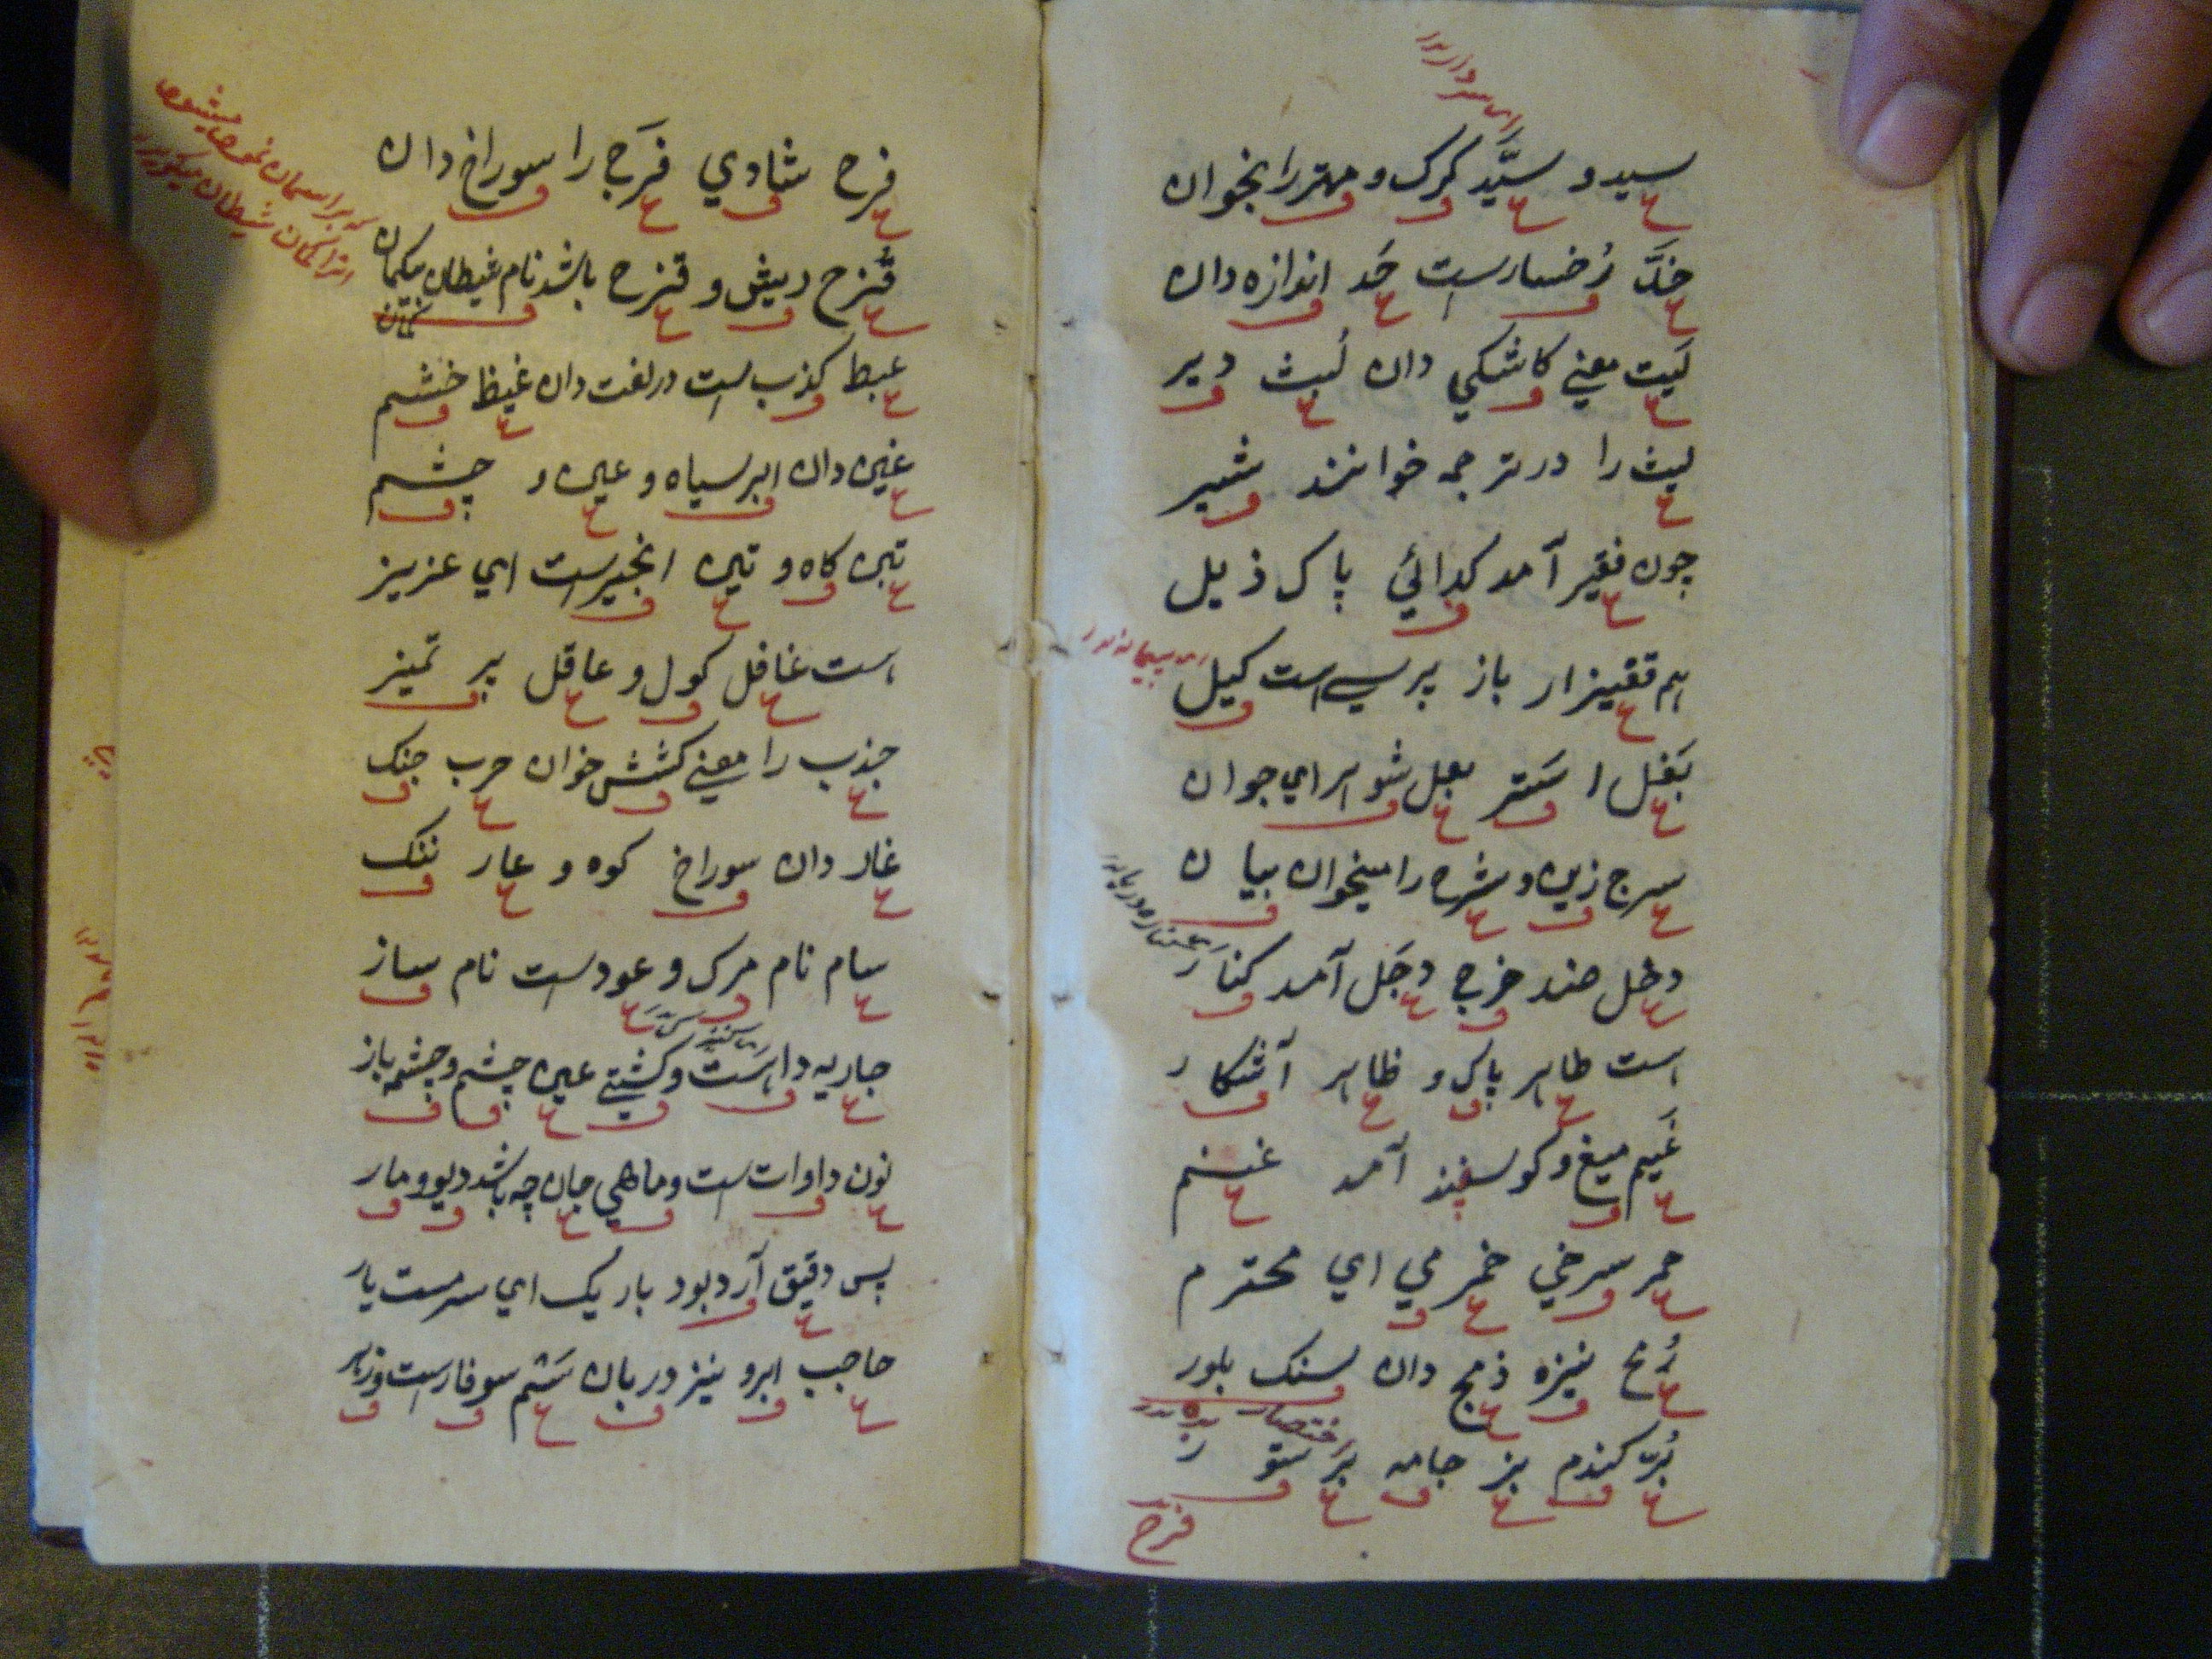 سید و سیّد کرک و مهتر را بخوان
خدّ رُخسارست حَد اندازه دان
لَیت معنی کاشکي دان لَبث دیر
لیث را در ترجمه خوانند شیر
چون فقیر آمد کدائي پاک ذیل
هم قفیز ار باز پرسی است کیل
بَغل اَستر بعل شوهر اي جوان
سرج زین و شرح را میخوان بیان
دخل ضد خرج دجَل آمد کنار
است طاهر پاک و ظاهر آشکار
غَیم میغ و کوسپند آمد غنم
حمر سرخي خمر مي اي محترم
رُمح نیزه دان سنک بلور
بُرّ کندم بز جامه بَر ستور
فرح
فرح شادي فَرَج را سوراخ دان
قُزح ریش و قزح باشد نام شیطان
عبط کذب است در لغت دان غیظ خشم
غین دان ابر سیاه و عین و چشم
تبن کاه و تین انجیرست اي عزیز
است غافل کول و عاقل پر تمیز
جذب را معنی کشش خوان حرب جنک
غار دان سوراخ کوه و عار ننک
سام نام مرک و عودست نام ساز
جاریه داه است و کشتي عین چشم و چشمه باز
نون داوات است و ماهي جان چه باشد دیو و مار
پس دقیق آرد بود باریک اي سرمست یار
حاجب ابرو نیز دربان سَم سوفارست و زهر